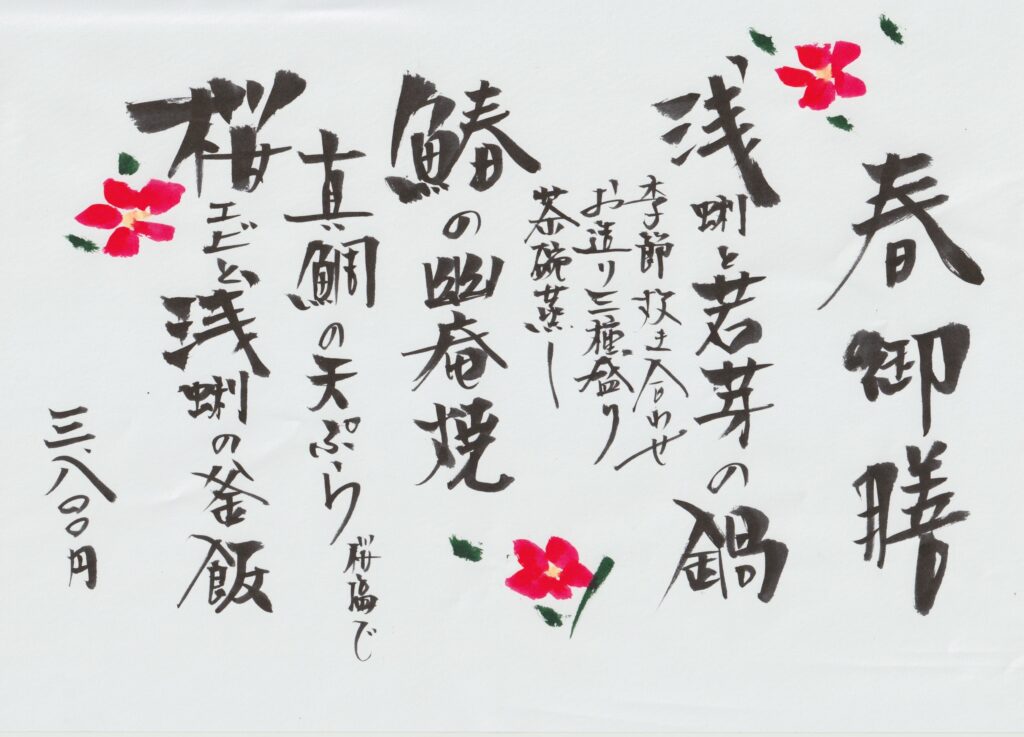 春御膳
浅蜊と若芽の鍋
季節炊き合わせ
お造り三種盛り
茶碗蒸し
鰆の幽庵焼
真鯛の天ぷら 桜塩で
桜エビと浅蜊の釜飯
三、八〇〇円